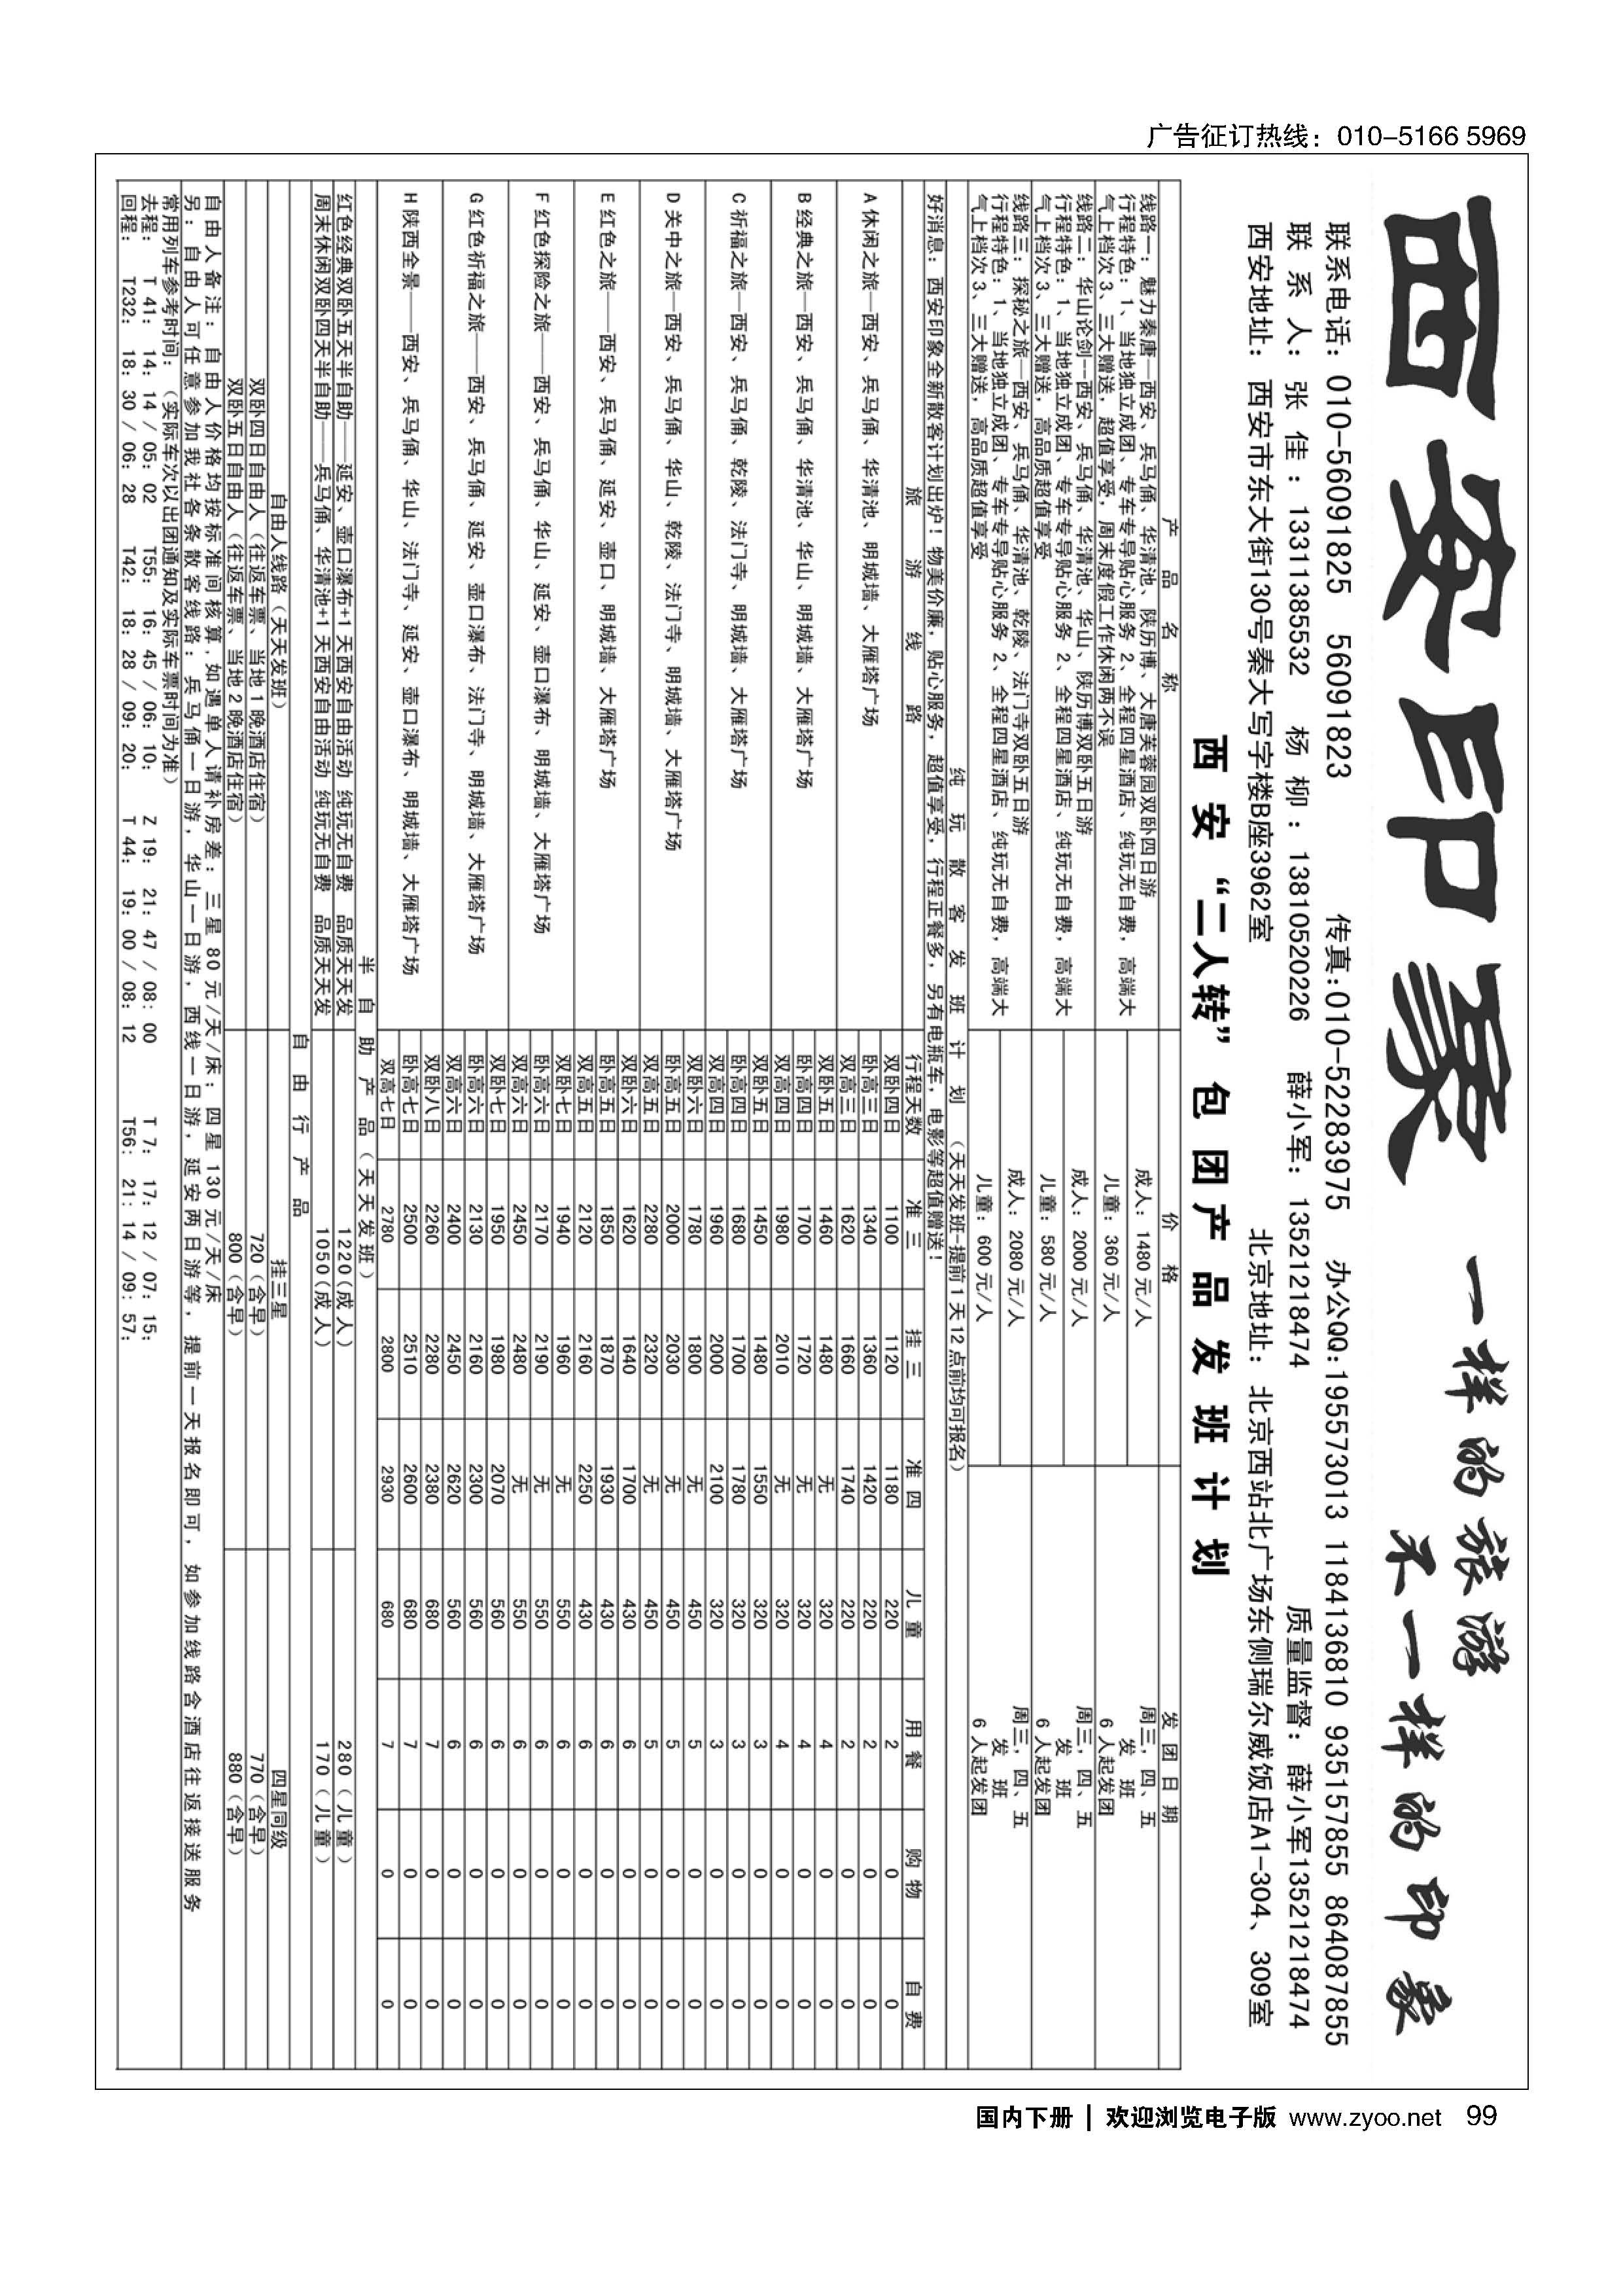 广告征订热线：010-5166 5969
西安印象
一样的旅游
不一样的印象
联系电话：010-56091825 56091823 传真:010-52283975 办公QQ:195573013 1184136810 935157855 864087855
联 系 人：张 佳：13311385532 杨 柳：13810520226 薛小军：13521218474 质量监督：薛小军13521218474
西安地址：西安市东大街130号秦大写字楼B座3962室 北京地址：北京西站北广场东侧瑞尔威饭店A1-304、309室
西 安 “二人转” 包 团 产 品 发 班 计 划
产 品 名 称 价 格 发 团 日 期
线路一：魅力秦唐—西安、兵马俑、华清池、陕历博、大唐芙蓉园双卧四日游 成人：1480 元/人 周三，四、五
行程特色：1、当地独立成团、专车专导贴心服务 2、全程四星酒店、纯玩无自费，高端大 发 班
气上档次 3、三大赠送，超值享受，周末度假工作休闲两不误 儿童：360 元/人 6 人起发团
线路二：华山论剑--西安、兵马俑、华清池、华山、陕历博双卧五日游 成人：2000 元/人 周三，四、五
行程特色：1、当地独立成团、专车专导贴心服务 2、全程四星酒店、纯玩无自费，高端大 发 班
气上档次 3、三大赠送，高品质超值享受 儿童：580 元/人 6 人起发团
线路三：探秘之旅—西安、兵马俑、华清池、乾陵、法门寺双卧五日游 成人：2080 元/人 周三，四、五
行程特色：1、当地独立成团、专车专导贴心服务 2、全程四星酒店、纯玩无自费，高端大 发 班
气上档次 3、三大赠送，高品质超值享受 儿童：600 元/人 6 人起发团
纯 玩 散 客 发 班 计 划 （天天发班-提前 1 天 12 点前均可报名）
好消息：西安印象全新散客计划出炉！物美价廉，贴心服务，超值享受，行程正餐多，另有电瓶车，电影等超值赠送！
旅 游 线 路 行程天数 准 三 挂 三 准 四 儿 童 用 餐 购 物 自 费
A 休闲之旅—西安、兵马俑、华清池、明城墙、大雁塔广场
双卧四日 1100 1120 1180 220 2 0 0
卧高三日 1340 1360 1420 220 2 0 0
双高三日 1620 1660 1740 220 2 0 0
B 经典之旅—西安、兵马俑、华清池、华山、明城墙、大雁塔广场
双卧五日 1460 1480 无 320 4 0 0
卧高四日 1700 1720 无 320 4 0 0
双高四日 1980 2010 无 320 4 0 0
C 祈福之旅—西安、兵马俑、乾陵、法门寺、明城墙、大雁塔广场
双卧五日 1450 1480 1550 320 3 0 0
卧高四日 1680 1700 1780 320 3 0 0
双高四日 1960 2000 2100 320 3 0 0
D 关中之旅—西安、兵马俑、华山、乾陵、法门寺、明城墙、大雁塔广场
双卧六日 1780 1800 无 450 5 0 0
卧高五日 2000 2030 无 450 5 0 0
双高五日 2280 2320 无 450 5 0 0
E 红色之旅——西安、兵马俑、延安、壶口、明城墙、大雁塔广场
双卧六日 1620 1640 1700 430 6 0 0
卧高五日 1850 1870 1930 430 6 0 0
双高五日 2120 2160 2250 430 6 0 0
F 红色探险之旅——西安、兵马俑、华山、延安、壶口瀑布、明城墙、大雁塔广场
双卧七日 1940 1960 无 550 6 0 0
卧高六日 2170 2190 无 550 6 0 0
双高六日 2450 2480 无 550 6 0 0
G 红色祈福之旅——西安、兵马俑、延安、壶口瀑布、法门寺、明城墙、大雁塔广场
双卧七日 1950 1980 2070 560 6 0 0
卧高六日 2130 2160 2300 560 6 0 0
双高六日 2400 2450 2620 560 6 0 0
H 陕西全景——西安、兵马俑、华山、法门寺、延安、壶口瀑布、明城墙、大雁塔广场
双卧八日 2260 2280 2380 680 7 0 0
卧高七日 2500 2510 2600 680 7 0 0
双高七日 2780 2800 2930 680 7 0 0
半 自 助 产 品（天天发班）
红色经典双卧五天半自助——延安、壶口瀑布+1 天西安自由活动 纯玩无自费 品质天天发 1220(成人) 280（儿童）
周末休闲双卧四天半自助——兵马俑、华清池+1 天西安自由活动 纯玩无自费 品质天天发 1050(成人) 170（儿童）
自 由 行 产 品
自由人线路（天天发班） 挂三星 四星同级
双卧四日自由人（往返车票、当地 1 晚酒店住宿） 720（含早） 770（含早）
双卧五日自由人（往返车票、当地 2 晚酒店住宿） 800（含早） 880（含早）
自由人备注：自由人价格均按标准间核算，如遇单人请补房差：三星 80 元/天/床；四星 130 元/天/床
另：自由人可任意参加我社各条散客线路：兵马俑一日游，华山一日游，西线一日游，延安两日游等，提前一天报名即可，如参加线路含酒店往返接送服务
常用列车参考时间：（实际车次以出团通知及实际车票时间为准）
去程： T 41: 14: 14 / 05: 02 T55: 16: 45 / 06: 10: Z 19: 21: 47 / 08: 00 T 7: 17: 12 / 07: 15:
回程： T232: 18: 30 / 06: 28 T42: 18: 28 / 09: 20: T 44: 19: 00 / 08: 12 T56: 21: 14 / 09: 57:
国内下册 | 欢迎浏览电子版 www.zyoo.net 99